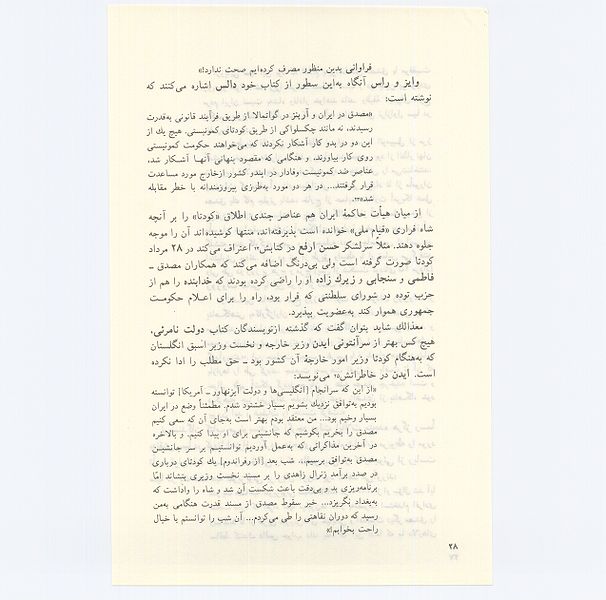 فراوانی بدین منظور مصرف کرده‌ایم صحت ندارد!»
وایز و راس آنگاه به‌این سطور از کتاب خود دالس اشاره می‌کنند که
نوشته است:
«مصدق در ایران و آربنز در گواتمالا از طریق فرآیند قانونی به‌قدرت
رسیدند، نه مانند چکسلواکی از طریق کودتای کمونیستی. هیچ یك از
این دو در بدو کار آشکار نکردند که می‌خواهند حکومت کمونیستی
روی کار بیاورند، و هنگامی که مقصود پنهانی آنهـا آشـکار شد،
عناصر ضد کمونیست وفادار در ایندو کشور ازخارج مورد مساعدت
قرار گرفتند... در هر دو مورد به‌طرزی پیروزمندانه با خطر مقابله
شد»
از میان هیأت حاکمهٔ ایران هم عناصر چندی اطلاق «کودتا» را بر آنچه
شاه فراری «قیام ملی» خوانده است پذیرفته‌اند، منتها کوشیده‌اند آن را موجه
جلوه دهند. مثلا سرلشکر حسن ارفع در کتابش اعتراف می‌کند در ۲۸ مرداد
کودتا صورت گرفته است ولی بی‌درنگ اضافه می‌کند که همکاران مصدق ـ
فاطمی و سنجابی و زیرك زاده او را راضی کرده بودند که خدابنده را هم از
حزب توده در شورای سلطنتی که قرار بود، راه را برای اعـلام حکومـت
جمهوری هموار کند به‌عضویت بپذیرد.
معذالك شاید بتوان گفت که گذشته ازنویسندگان کتاب دولت نامرئی،
هیچ کس بهتر از سرآنتونی ایدن وزیر خارجه و نخست وزیر اسبق انگلستان
که به‌هنگام کودتا وزیر امور خارجهٔ آن کشور بود ـ حق مطلب را ادا نکرده
است. ایدن در خاطراتش می‌نویسد:
«از این که سرانجام [انگلیسی‌ها و دولت آیزنهاور ـ آمریکا] توانسته
بودیم به‌توافق نزدیك بشویم بسیار خشنود شدم. مطمئناً وضع در ایران
بسیار وخیم بود... من معتقد بودم بهتر است به‌جای آن که سعی کنیم
مصدق را بخریم بکوشیم که جانشینی برای او پیدا کنیم. و بالاخره
در آخرین مذاکراتی که به‌عمل آوردیم توانستیـم بر سر جانشیـن
مصدق به‌توافق برسیم... شب بعد [از رفراندوم] یك کودتای درباری
در صدد برآمد ژنرال زاهدی را بر مسند نخست وزیری بنشاند امّا
برنامه‌ریزی بد و بی‌دقت باعث شکست آن شد و شاه را واداشت که
به‌بغداد بگریزد... خبر سقوط مصدق از مسند قدرت هنگامی به‌من
رسید که دوران نقاهتی را طی می‌کردم... آن شب را توانستم با خیال
راحت بخوابم!»
۲۸